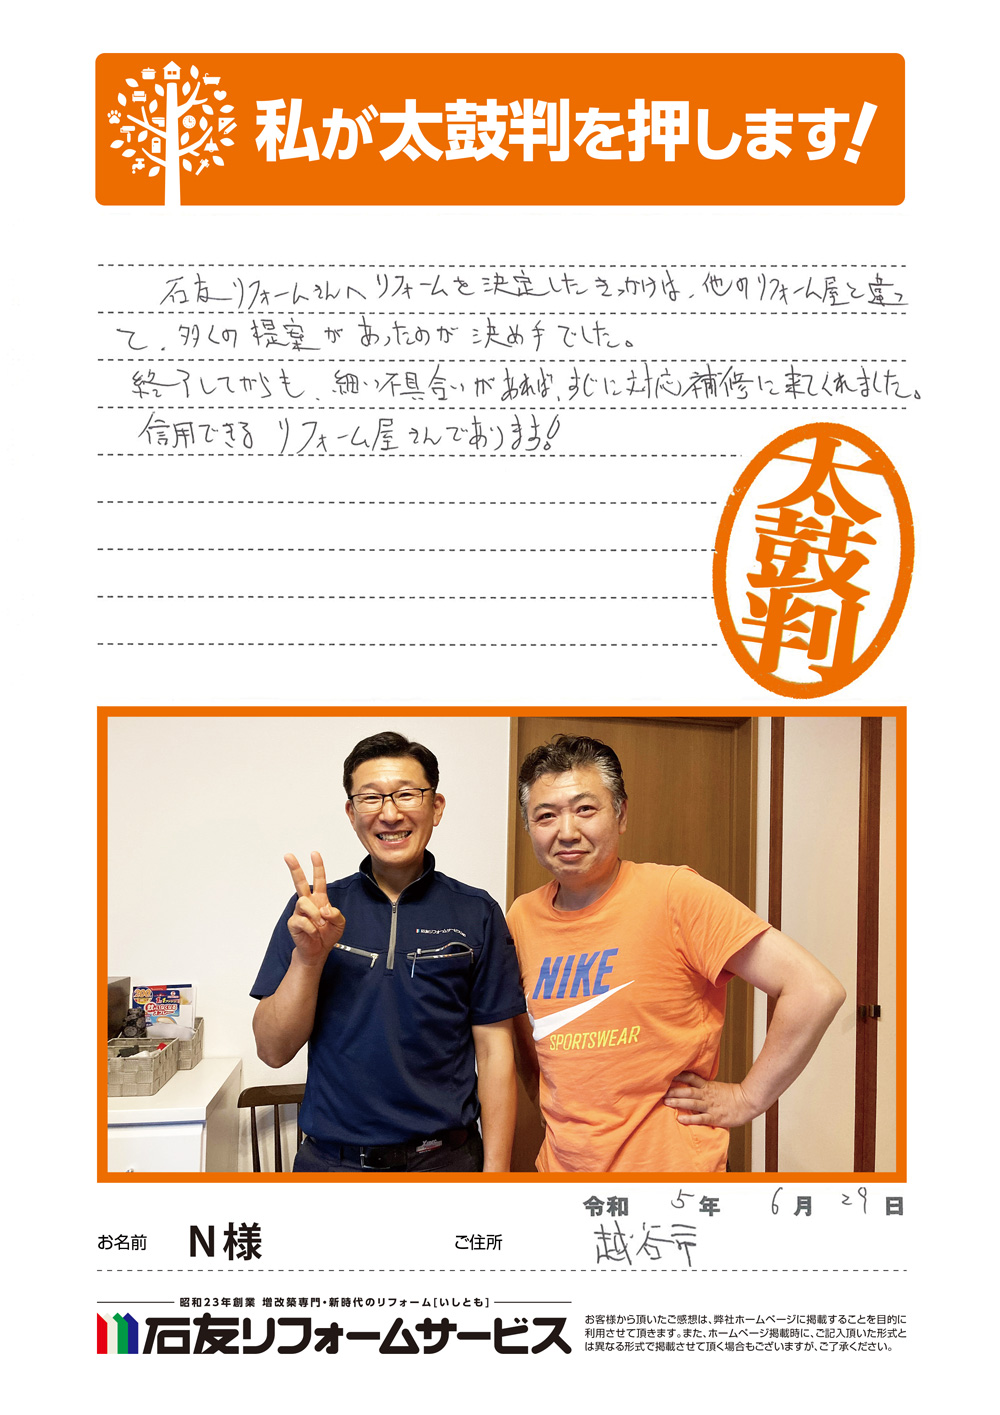 私が太鼓判を押します!
石友リフォームさんへリフォームを決定したきっかけは、他のリフォーム屋と違っ
て、多くの提案があったのが決め手でした。
終了してからも、細い不具合いがあれば、すぐに対応補修に来てくれました。
信用できるリフォーム屋さんであります!
太鼓判
石友リフォームサービス
NIKE
SPORTSWEAR
令和 5年 6月 29日
お名前 N様 ご住所 越谷市
昭和23年創業 増改築専門・新時代のリフォーム[いしとも]
石友リフォームサービス
お客様から頂いたご感想は、弊社ホームページに掲載することを目的に
利用させて頂きます。また、ホームページ掲載時に、ご記入頂いた形式と
は異なる形式で掲載させて頂く場合もございますが、ご了承ください。